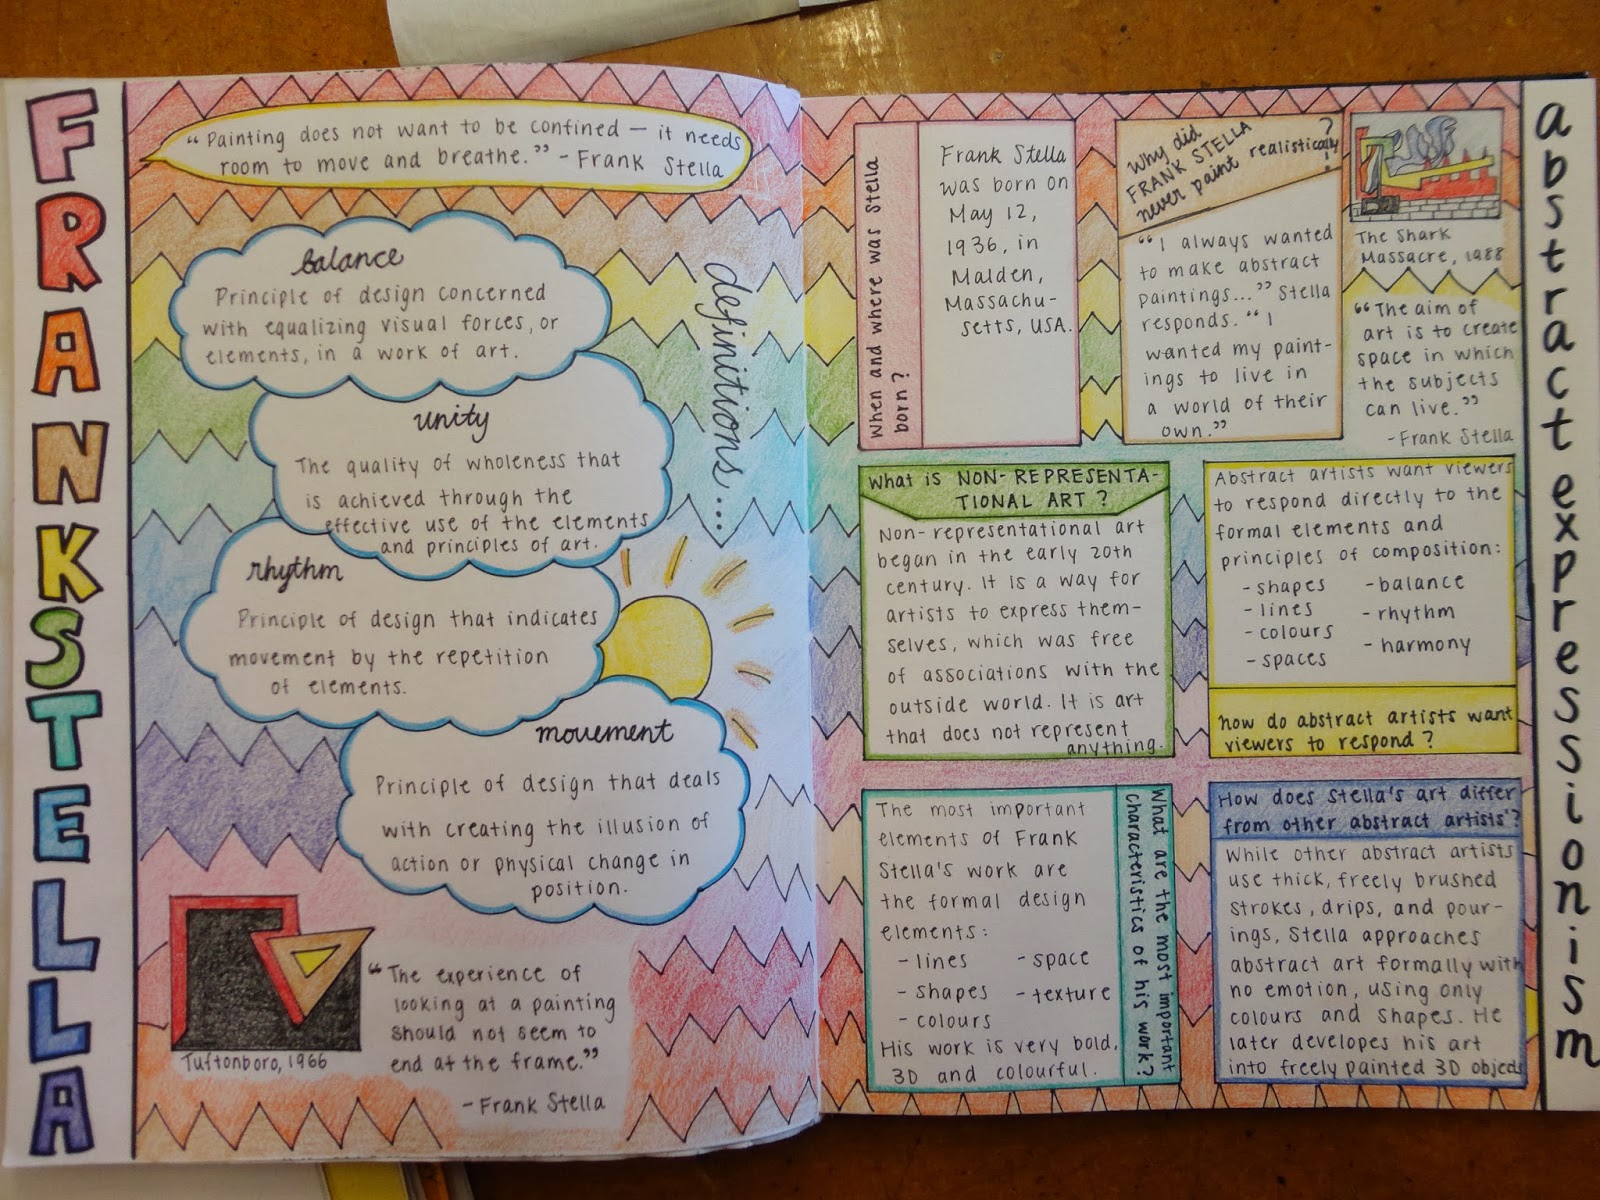 FRANK STELLA
"Painting does not want to be confined — it needs
room to move and breathe." - Frank Stella
definitions...
balance
Principle of design concerned
with equalizing visual forces, or
elements, in a work of art.
unity
The quality of wholeness that
is achieved through the
effective use of the elements
and principles of art.
rhythm
Principle of design that indicates
movement by the repetition
of elements.
movement
Principle of design that deals
with creating the illusion of
action or physical change in
position.
Tuftonboro, 1966
"The experience of
looking at a painting
should not seem to
end at the frame."
- Frank Stella
When and where was Stella
born?
Frank Stella
was born on
May 12,
1936, in
Malden,
Massachu-
setts, USA.
Why did
FRANK STELLA
never paint realistically?
"I always wanted
to make abstract
paintings..." Stella
responds. "I
wanted my paint-
ings to live in
a world of their
own."
The Shark
Massacre, 1988
"The aim of
art is to create
space in which
the subjects
can live."
- Frank Stella
What is NON-REPRESENTA-
TIONAL ART?
Non-representational art
began in the early 20th
century. It is a way for
artists to express them-
selves, which was free
of associations with the
outside world. It is art
that does not represent
anything.
Abstract artists want viewers
to respond directly to the
formal elements and
principles of composition:
- shapes - balance
- lines - rhythm
- colours - harmony
- spaces
How do abstract artists want
viewers to respond?
The most important
elements of Frank
Stella's work are
the formal design
elements:
- lines - space
- shapes - texture
- colours
His work is very bold,
3D and colourful.
What are the most important
characteristics of his work?
How does Stella's art differ
from other abstract artists'?
While other abstract artists
use thick, freely brushed
strokes, drips, and pour-
ings, Stella approaches
abstract art formally with
no emotion, using only
colours and shapes. He
later developes his art
into freely painted 3D objects
abstract expressionism